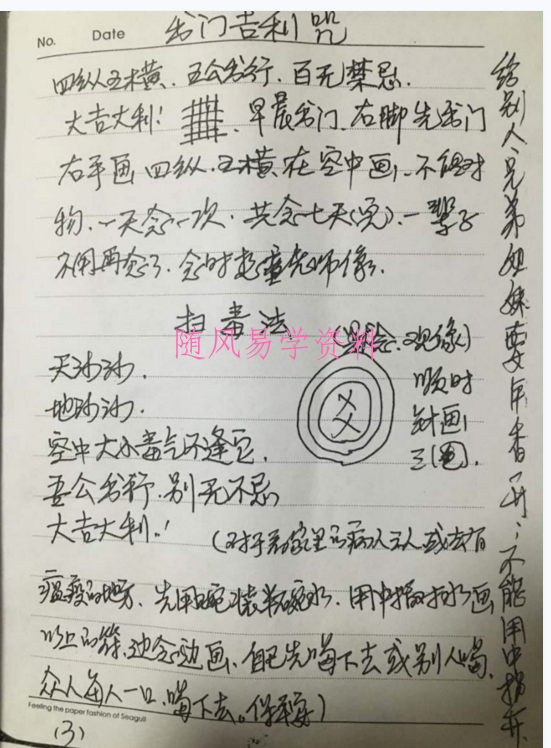 No. Date 出门吉利咒
四纵五横，五公出行，百无禁忌，
大吉大利！，早晨出门，右脚先出门
右手画四纵，五横，在空中画，不能对
物，一天念一次，共念七天(完)，一辈子
不用再念了，念时想童先师像，
扫毒法 (默念，观像)
随风易学资料
天沙沙， 顺时
地沙沙， 针画
空中大小毒气不逢它， 三(圈)，
吾公出行，别无不忌
大吉大利！
(对于某家里的病人 或去有
瘟疫的地方，先用碗装半碗水，用中指对水画
以上的符，边念边画，自己先喝下去或别人喝，
众人每人一口，喝下去。保平安)
Feeling the paper fashion of Seagull
(3)
给别人兄弟姐妹要
不能用中指